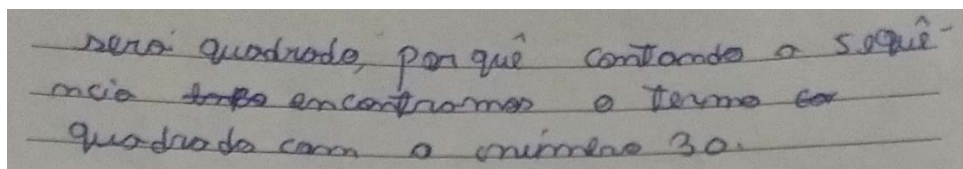 será quadrado, por quê contando a sequên-
ncia encontramos o termo
quadrado com o número 30.